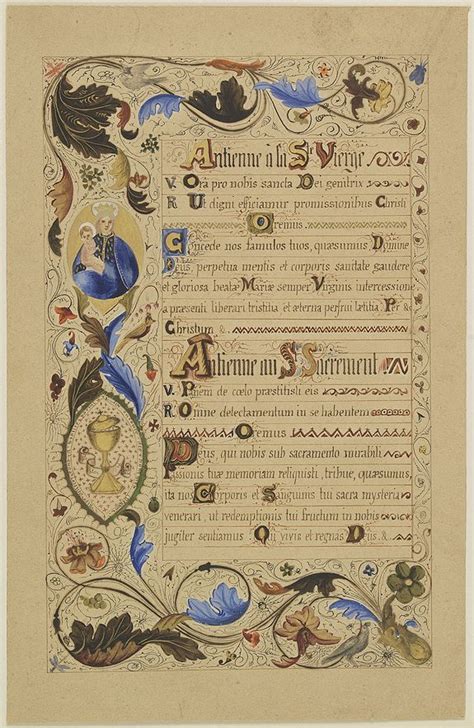 Antienne à la S. Vierge
V. Ora pro nobis sancta Dei genitrix
R. Ut digni efficiamur promissionibus Christi
Oremus
Concede nos famulos tuos, quæsumus Domine
Deus, perpetua mentis et corporis sanitate gaudere
et gloriosa beatæ Mariæ semper Virginis intercessione
a præsenti liberari tristitia et æterna perfrui lætitia Per
Christum &
Antienne au S. Sacrement
V. Panem de cœlo præstitisti eis
R. Omne delectamentum in se habentem
Oremus
Deus, qui nobis sub sacramento mirabili
Passionis tuæ memoriam reliquisti, tribue, quæsumus,
ita nos Corporis et Sanguinis tui sacra mysteria
venerari, ut redemptionis tui fructum in nobis
jugiter sentiamus Qui vivis et regnas Deus, &